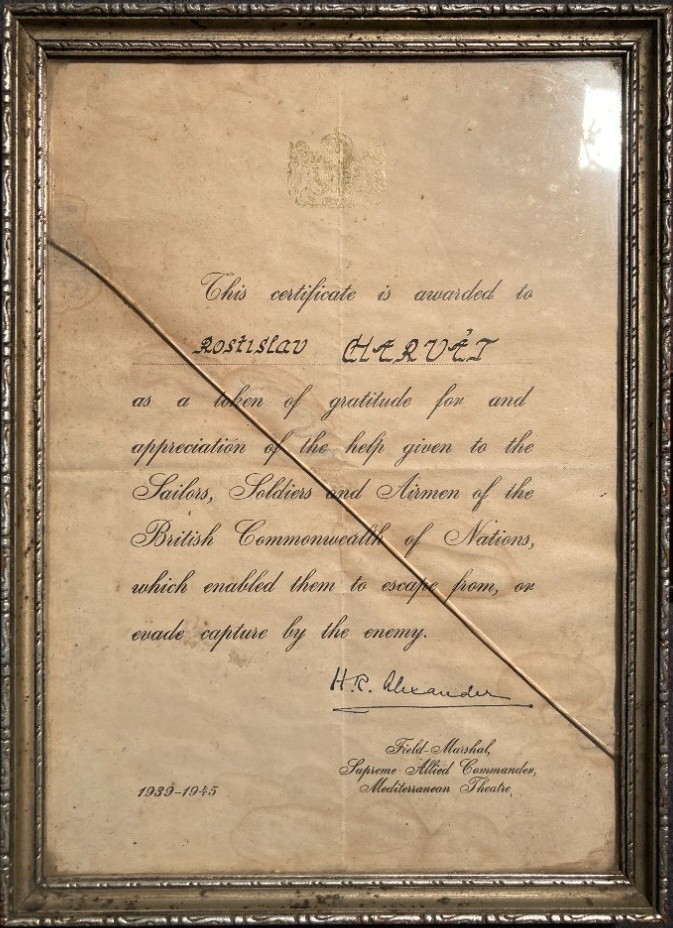 This certificate is awarded to
Rostislav CHARVÁT
as a token of gratitude for and
appreciation of the help given to the
Sailors, Soldiers and Airmen of the
British Commonwealth of Nations,
which enabled them to escape from, or
evade capture by the enemy.
H.R. Alexander
Field-Marshal,
Supreme Allied Commander,
Mediterranean Theatre
1939-1945